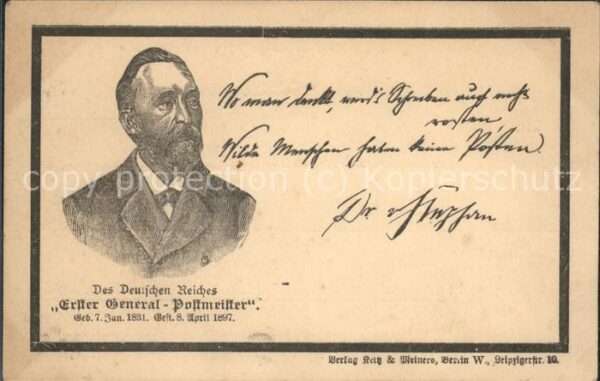 Wo man denkt, wird's Schreiben auch nicht
rosten
Wilde Menschen haben keine Posten.
Dr. v Stephan
copy protection © Kopierschutz
Des Deutschen Reiches
„Erster General-Postmeister".
Geb. 7. Jan. 1831. Gest. 8. April 1897.
Verlag Keitz & Meiners, Berlin W., Leipzigerstr. 10.